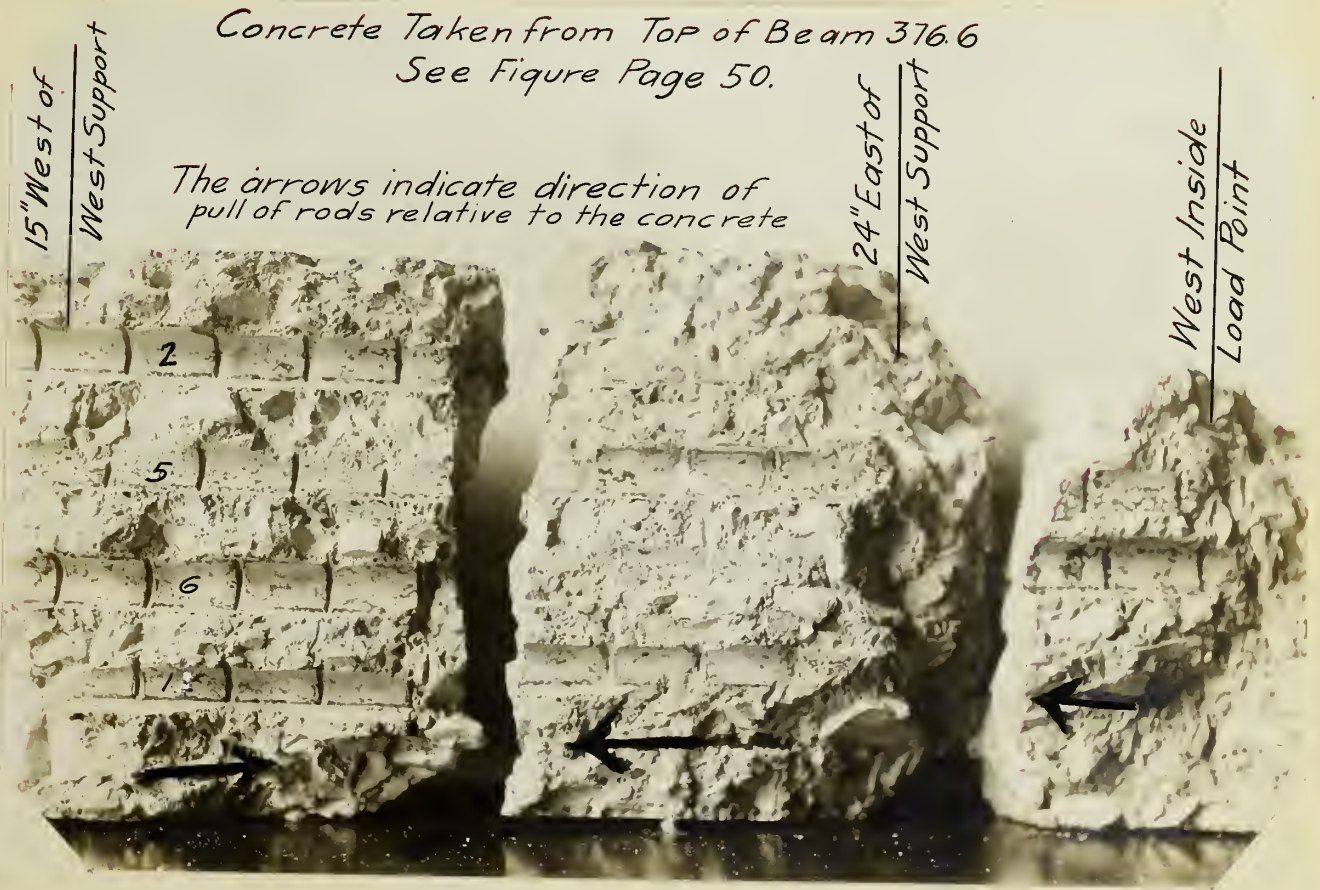 Concrete Taken from Top of Beam 376.6
See Figure Page 50.
15" West of
West Support
The arrows indicate direction of
pull of rods relative to the concrete
24" East of
West Support
West Inside
Load Point
2
5
6
1